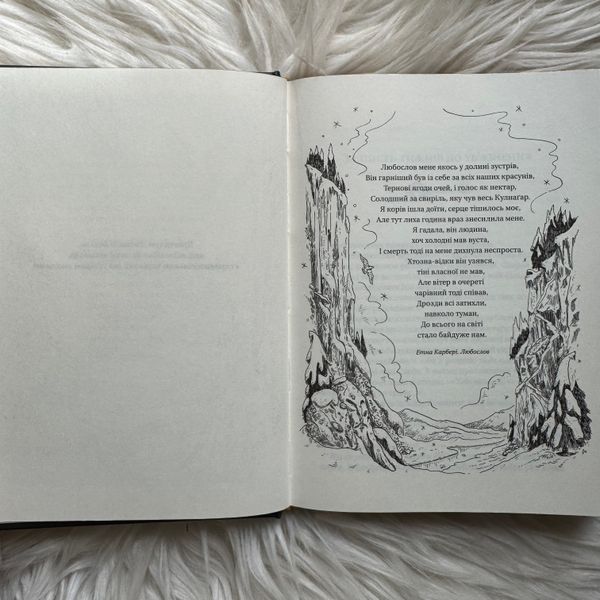 Любослов мене якось у долині зустрів,
Він гарніший був із себе за всіх наших красунів,
Тернові ягоди очей, і голос як нектар,
Солодший за свиріль, яку чув весь Кулнагар.
Я корів ішла доїти, серце тішилось моє,
Але тут лиха година враз знесилила мене.
Я гадала, він людина,
хоч холодні мав вуста,
І смерть тоді на мене дихнула неспроста.
Хтозна-відки він узявся,
тіні власної не мав,
Але вітер в очереті
чарівний тоді співав,
Дрозди всі затихли,
навколо туман,
До всього на світі
стало байдуже нам.
Етна Карбері. Любослов